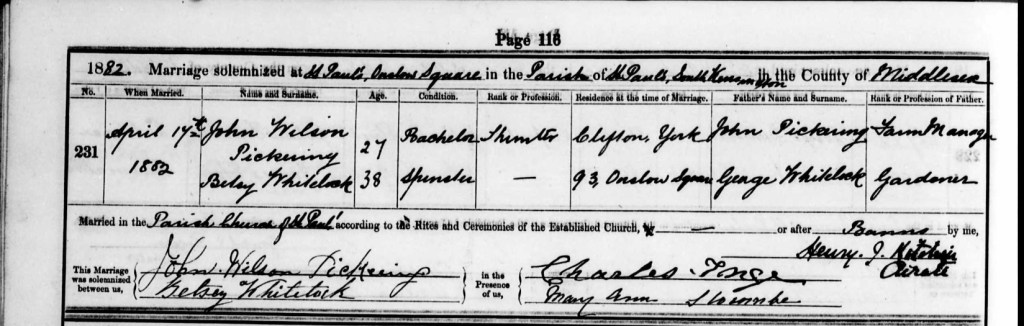 Page 116
1882. Marriage solemnized at St Paul's, Onslow Square in the Parish of St Paul's, South Kensington in the County of Middlesex
No. When Married. Name and Surname. Age. Condition. Rank or Profession. Residence at the time of Marriage. Father's Name and Surname. Rank or Profession of Father.
231 April 17th 1882 John Wilson Pickering 27 Bachelor Clifton, York John Pickering Farm Manager
Betsy Whitelock 38 Spinster — 93, Onslow Square George Whitelock Gardener
Married in the Parish Church of St Paul according to the Rites and Ceremonies of the Established Church, — or after Banns by me,
Henry J.
Curate
This Marriage was solemnized between us, John Wilson Pickering in the Presence of us, Charles Inge
Betsey Whitelock Mary Ann Slocombe